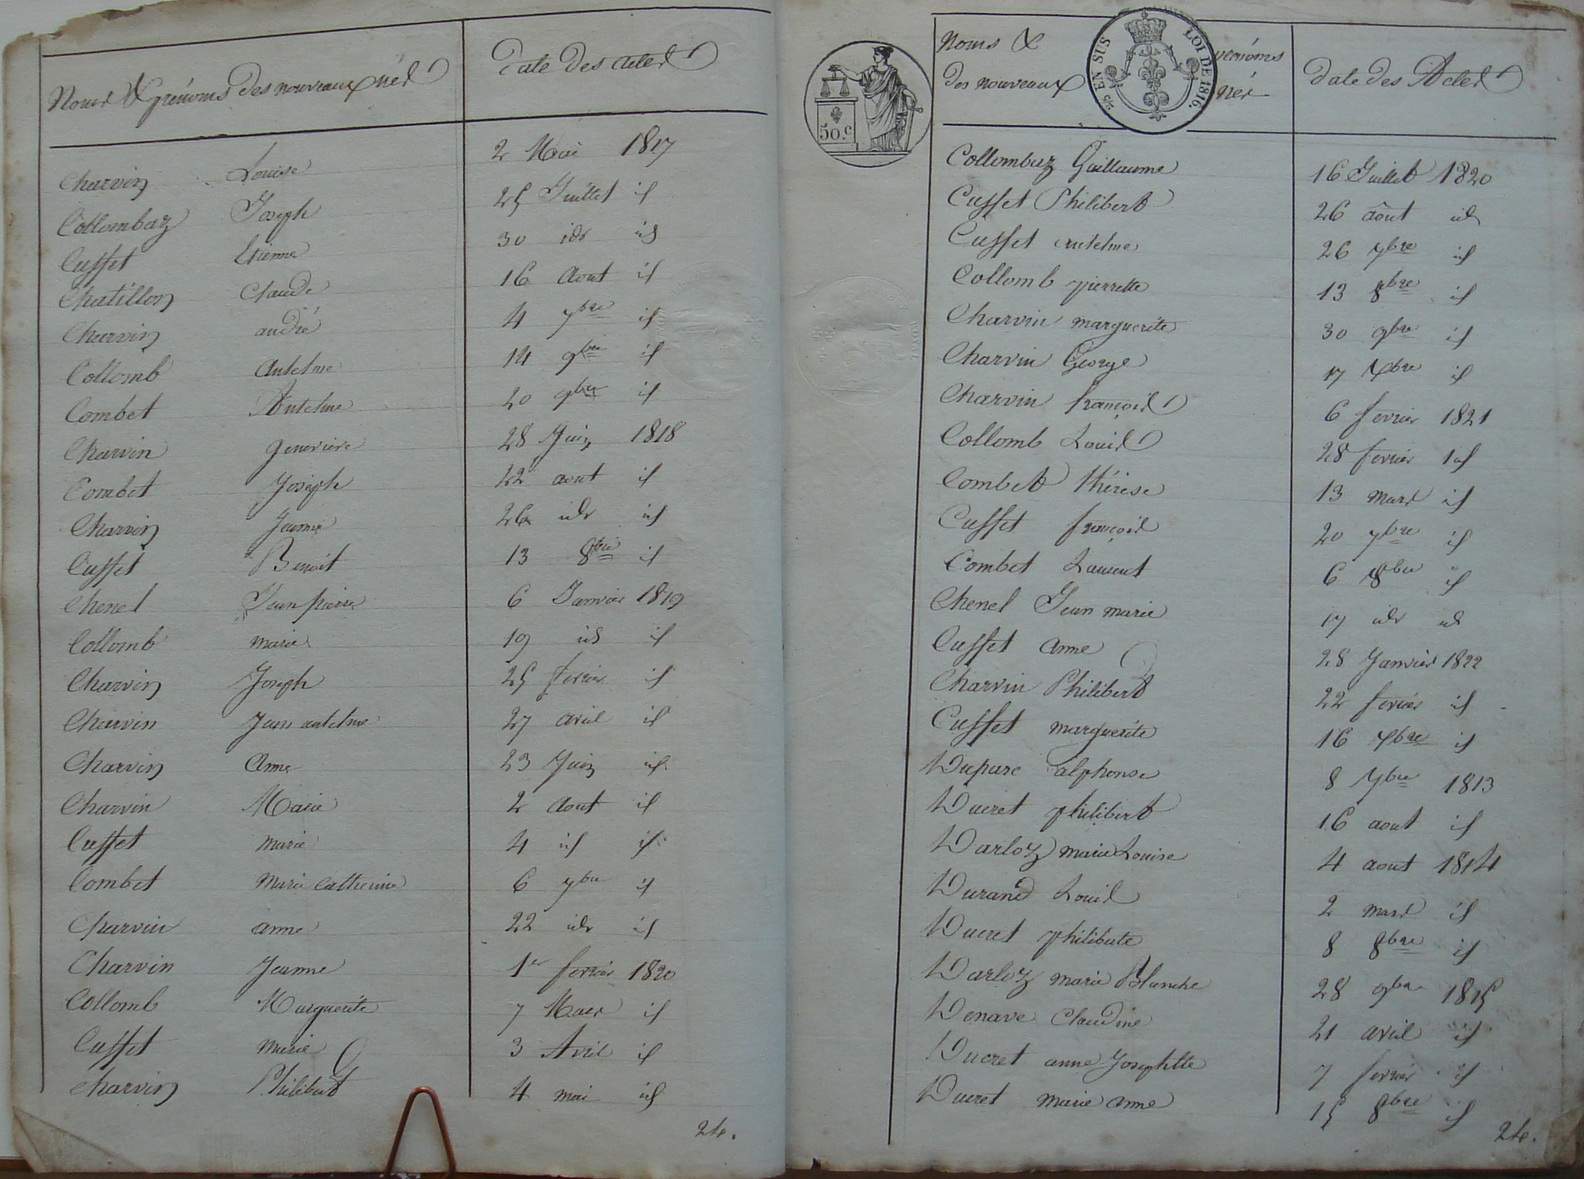 Noms & prénoms des nouveaux nés
date des actes
Charvin Louise 2 Mai 1817
Collombaz Joseph 25 Juillet id
Cusset Etienne 30 idr id
Chatillon Claude 16 Aout id
Charvin andré 4 7bre id
Collomb Antelme 14 9bre id
Combet Antelme 20 9bre id
Charvin Genevieve 28 Juin 1818
Combet Joseph 22 aout id
Charvin Jeanne 26 idr id
Cusset Benoit 13 8bre id
Chenel Jean pierre 6 Janvier 1819
Collomb marie 19 id id
Charvin Joseph 25 fevrier id
Charvin Jean antelme 27 avril id
Charvin Anne 23 Juin id
Charvin Marie 2 Aout id
Cusset marie 4 id id
Combet Marie Catherine 6 7bre id
Charvin anne 22 idr id
Charvin Jeanne 1er fevrier 1820
Collomb Marguerite 7 Mars id
Cusset marie 3 Avril id
Charvin Philibert 4 mai id
24.
50.c
Noms & prénoms
des nouveaux nés
EN SUS LOI DE 1816.
date des Actes
Collombaz Guillaume 16 Juillet 1820
Cusset Philibert 26 août id
Cusset antelme 26 7bre id
Collomb pierrette 13 8bre id
Charvin marguerite 30 9bre id
Charvin George 17 Xbre id
Charvin françois 6 fevrier 1821
Collomb Louis 28 fevrier id
Combet thérèse 13 mars id
Cusset françois 20 7bre id
Combet Laurent 6 8bre id
Chenel Jean marie 17 idr id
Cusset anne 28 Janvier 1822
Charvin Philibert 22 fevrier id
Cusset marguerite 16 Xbre id
Duparc alphonse 8 Xbre 1813
Ducret philibert 16 aout id
Darloz marie Louise 4 aout 1814
Durand Louis 2 mars id
Ducret philiberte 8 8bre id
Darloz marie Blanche 28 9bre 1815
Denave Claudine 21 avril id
Ducret anne Josephtte 7 fevrier id
Ducret marie anne 15 8bre id
24.